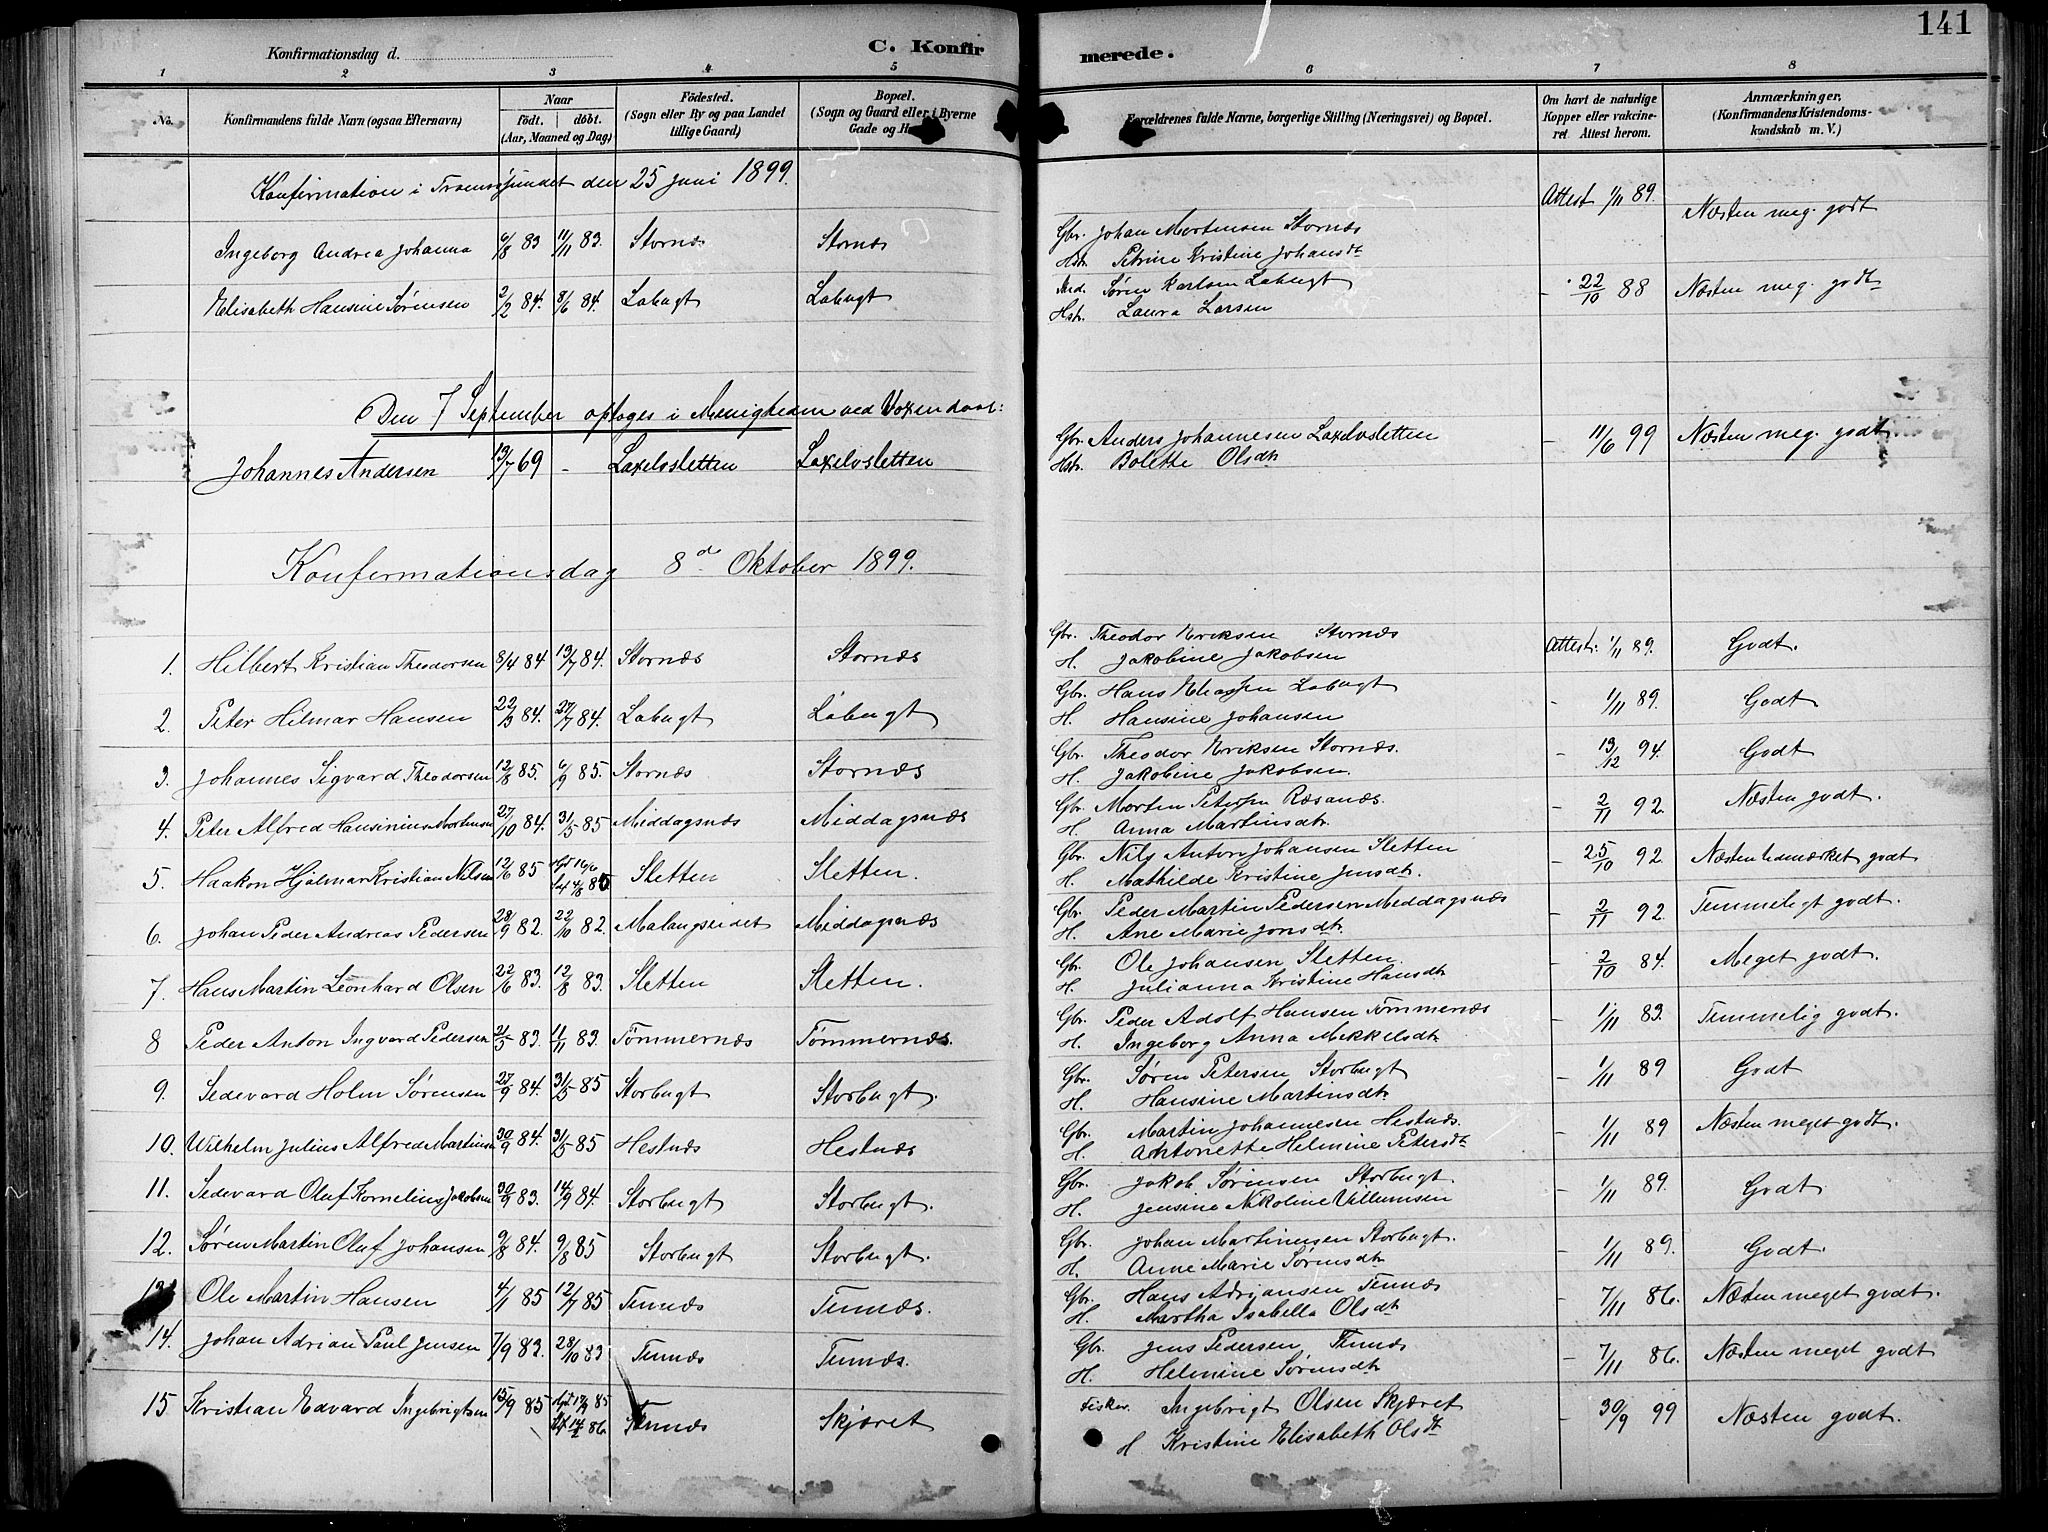 141
Konfirmationsdag d.
C. Konfirmerede.
1 2 3 4 5 6 7 8
No.
Konfirmandens fulde Navn (ogsaa Efternavn)
Naar
født. døbt.
(Aar, Maaned og Dag)
Födested.
(Sogn eller By og paa Landet
tillige Gaard)
Bopæl.
(Sogn og Gaard eller i Byerne
Gade og
Forældrenes fulde Navne, borgerlige Stilling (Næringsvei) og Bopæl.
Om havt de naturlige
Kopper eller vakcine-
ret. Attest herom.
Anmærkninger,
(Konfirmandens Kristendoms-
kundskab m. V.)
Konfirmation i Tromsøsundet den 25 juni 1899.
Ingeborg Andrea Johanna 6/8 83 11/11 83. Stornæs Stornæs Gbr. Johan Mortensen Stornæs Attest 1/11 89. Næsten meg. godt
Hstr. Petrine Kristine Johansdt
Elisabeth Hansine Sørensen 2/2 84. 8/6 84. Labugt Labugt Søren Karlsen Labugt - 22/10 88 Næsten meg. godt
Hstr. Laura Larsen
Den 7 September optoges i Menigheden ved Voxendaab:
Johannes Andersen 19/7 69 - Laxelvsletten Laxelvsletten Gbr. Anders Johannesen Laxelvsletten - 11/6 99 Næsten meg. godt
Hstr. Bolette Olsdtr
Konfirmationsdag 8de Oktober 1899.
1. Hilbert Kristian Theodorsen 8/4 84 13/7 84. Stornæs Stornæs Gbr. Theodor Eriksen Stornæs Attest. 1/11 89. Godt.
H. Jakobine Jakobsen
2. Peter Hilmar Hansen 22/3 84. 27/7 84. Labugt Labugt Gbr. Hans Eliassen Labugt - 1/11 89. Godt
H. Hansine Johansen
3. Johannes Sigvard Theodorsen 12/8 85. 6/9 85. Stornæs Stornæs Gbr. Theodor Eriksen Stornæs. - 13/12 94. Godt
H. Jakobine Jakobsen.
4. Peter Alfred Hansinius Mortensen 27/10 84. 31/5 85 Middagsnæs Middagsnæs Gbr. Morten Petersen Ræsanæs. - 2/11 92. Næsten godt.
H. Anna Martinsdtr.
5. Haakon Hjalmar Kristian Nilsen 12/6 85 Sletten Sletten. Gbr. Nils Anton Johansen Sletten - 25/10 92. Næsten udmærket godt
H. Mathilde Kristine Jensdtr.
6. Johan Peder Andreas Pedersen 28/9 82. 22/10 82. Malangseidet Middagsnæs Gbr. Peder Martin Pedersen Middagsnæs - 2/11 92. Temmeligt godt.
H. Ane Marie Jonsdtr.
7. Hans Martin Leonhard Olsen 22/6 83. 12/8 83. Sletten Sletten. Gbr. Ole Johansen Sletten. - 2/10 84. Meget godt.
H. Julianna Kristine Hansdtr
8 Peder Anton Ingvard Pedersen 21/5 83. 11/11 83. Tömmernæs Tömmernæs. Gbr. Peder Adolf Hansen Tömmernæs - 1/11 83. Temmelig godt.
H. Ingeborg Anna Mikkelsdtr
9. Sedevard Holm Sørensen 27/9 84. 31/5 85 Storbugt Storbugt. Gbr. Søren Petersen Storbugt - 1/11 89 Godt
H. Hansine Martinsdtr
10. Wilhelm Julius Alfred Martinsen 30/9 84. 31/5 85 Hestnæs Hestnæs Gbr. Martin Johannesen Hestnæs. - 1/11 89 Næsten meget godt.
H. Antoriette Helmine Petersdt
11. Sedevard Oluf Kornelius Jakobsen 30/9 83. 14/9 84. Storbugt Storbugt. Gbr. Jakob Sørensen Storbugt. - 1/11 89. Godt
H. Jensine Nikoline Villumsen
12. Søren Martin Oluf Johansen 9/8 84. 9/8 85 Storbugt Storbugt. Gbr. Johan Martinusen Storbugt. - 1/11 89. Godt.
H. Anne Marie Sørensdtr
Ole Martin Hansen 4/1 85 12/7 85 Tennæs Tennæs. Gbr. Hans Adrjansen Tennæs - 7/11 86. Næsten meget godt.
H. Martha Isabella Olsdtr
14. Johan Adrian Paul Jensen 7/9 83. 28/10 83 Tennæs Tennæs. Gbr. Jens Pedersen Tennæs - 7/11 86. Næsten meget godt
H. Helmine Sørensdtr
15. Kristian Edvard Ingebrigtsen 15/9 85 Tennæs Skjæret Fisker. Ingebrigt Olsen Skjæret - 30/9 99 Næsten godt.
H Kristine Elisabeth Olsdt